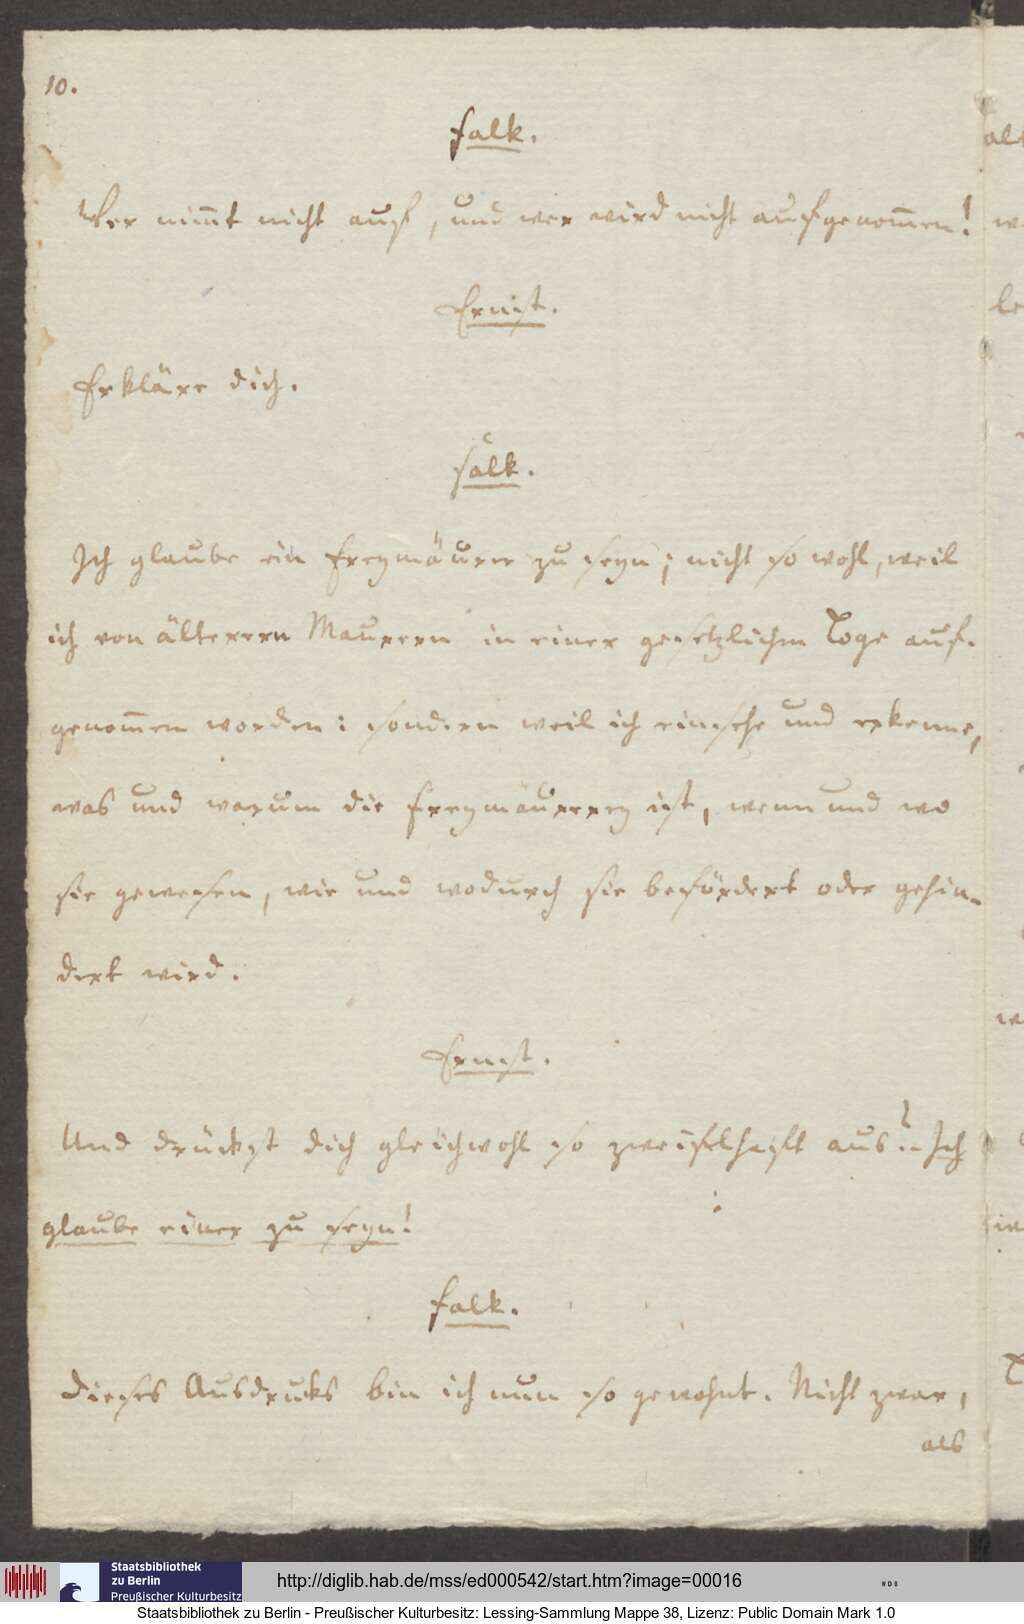 10.
Falk.
Wer nim̄t nicht auf, und wer wird nicht aufgenom̄en!
Ernst.
Erkläre dich.
Falk.
Ich glaube ein Freymäurer zu seyn; nicht so wohl, weil
ich von älteren Maurern in einer gesetzlichen Loge auf-
genom̄en worden: sondern weil ich einsehe und erkenne,
was und warum die Freymäurerey ist, wenn und wo
sie gewesen, wie und wodurch sie befördert oder gehin-
dert wird.
Ernst.
Und drückst dich gleichwohl so zweifelhaft aus? - Ich
glaube einer zu seyn!
Falk.
Dieses Ausdrucks bin ich nun so gewohnt. Nicht zwar,
als
Staatsbibliothek
zu Berlin
Preußischer Kulturbesitz
http://diglib.hab.de/mss/ed000542/start.htm?image=00016
Staatsbibliothek zu Berlin - Preußischer Kulturbesitz: Lessing-Sammlung Mappe 38, Lizenz: Public Domain Mark 1.0